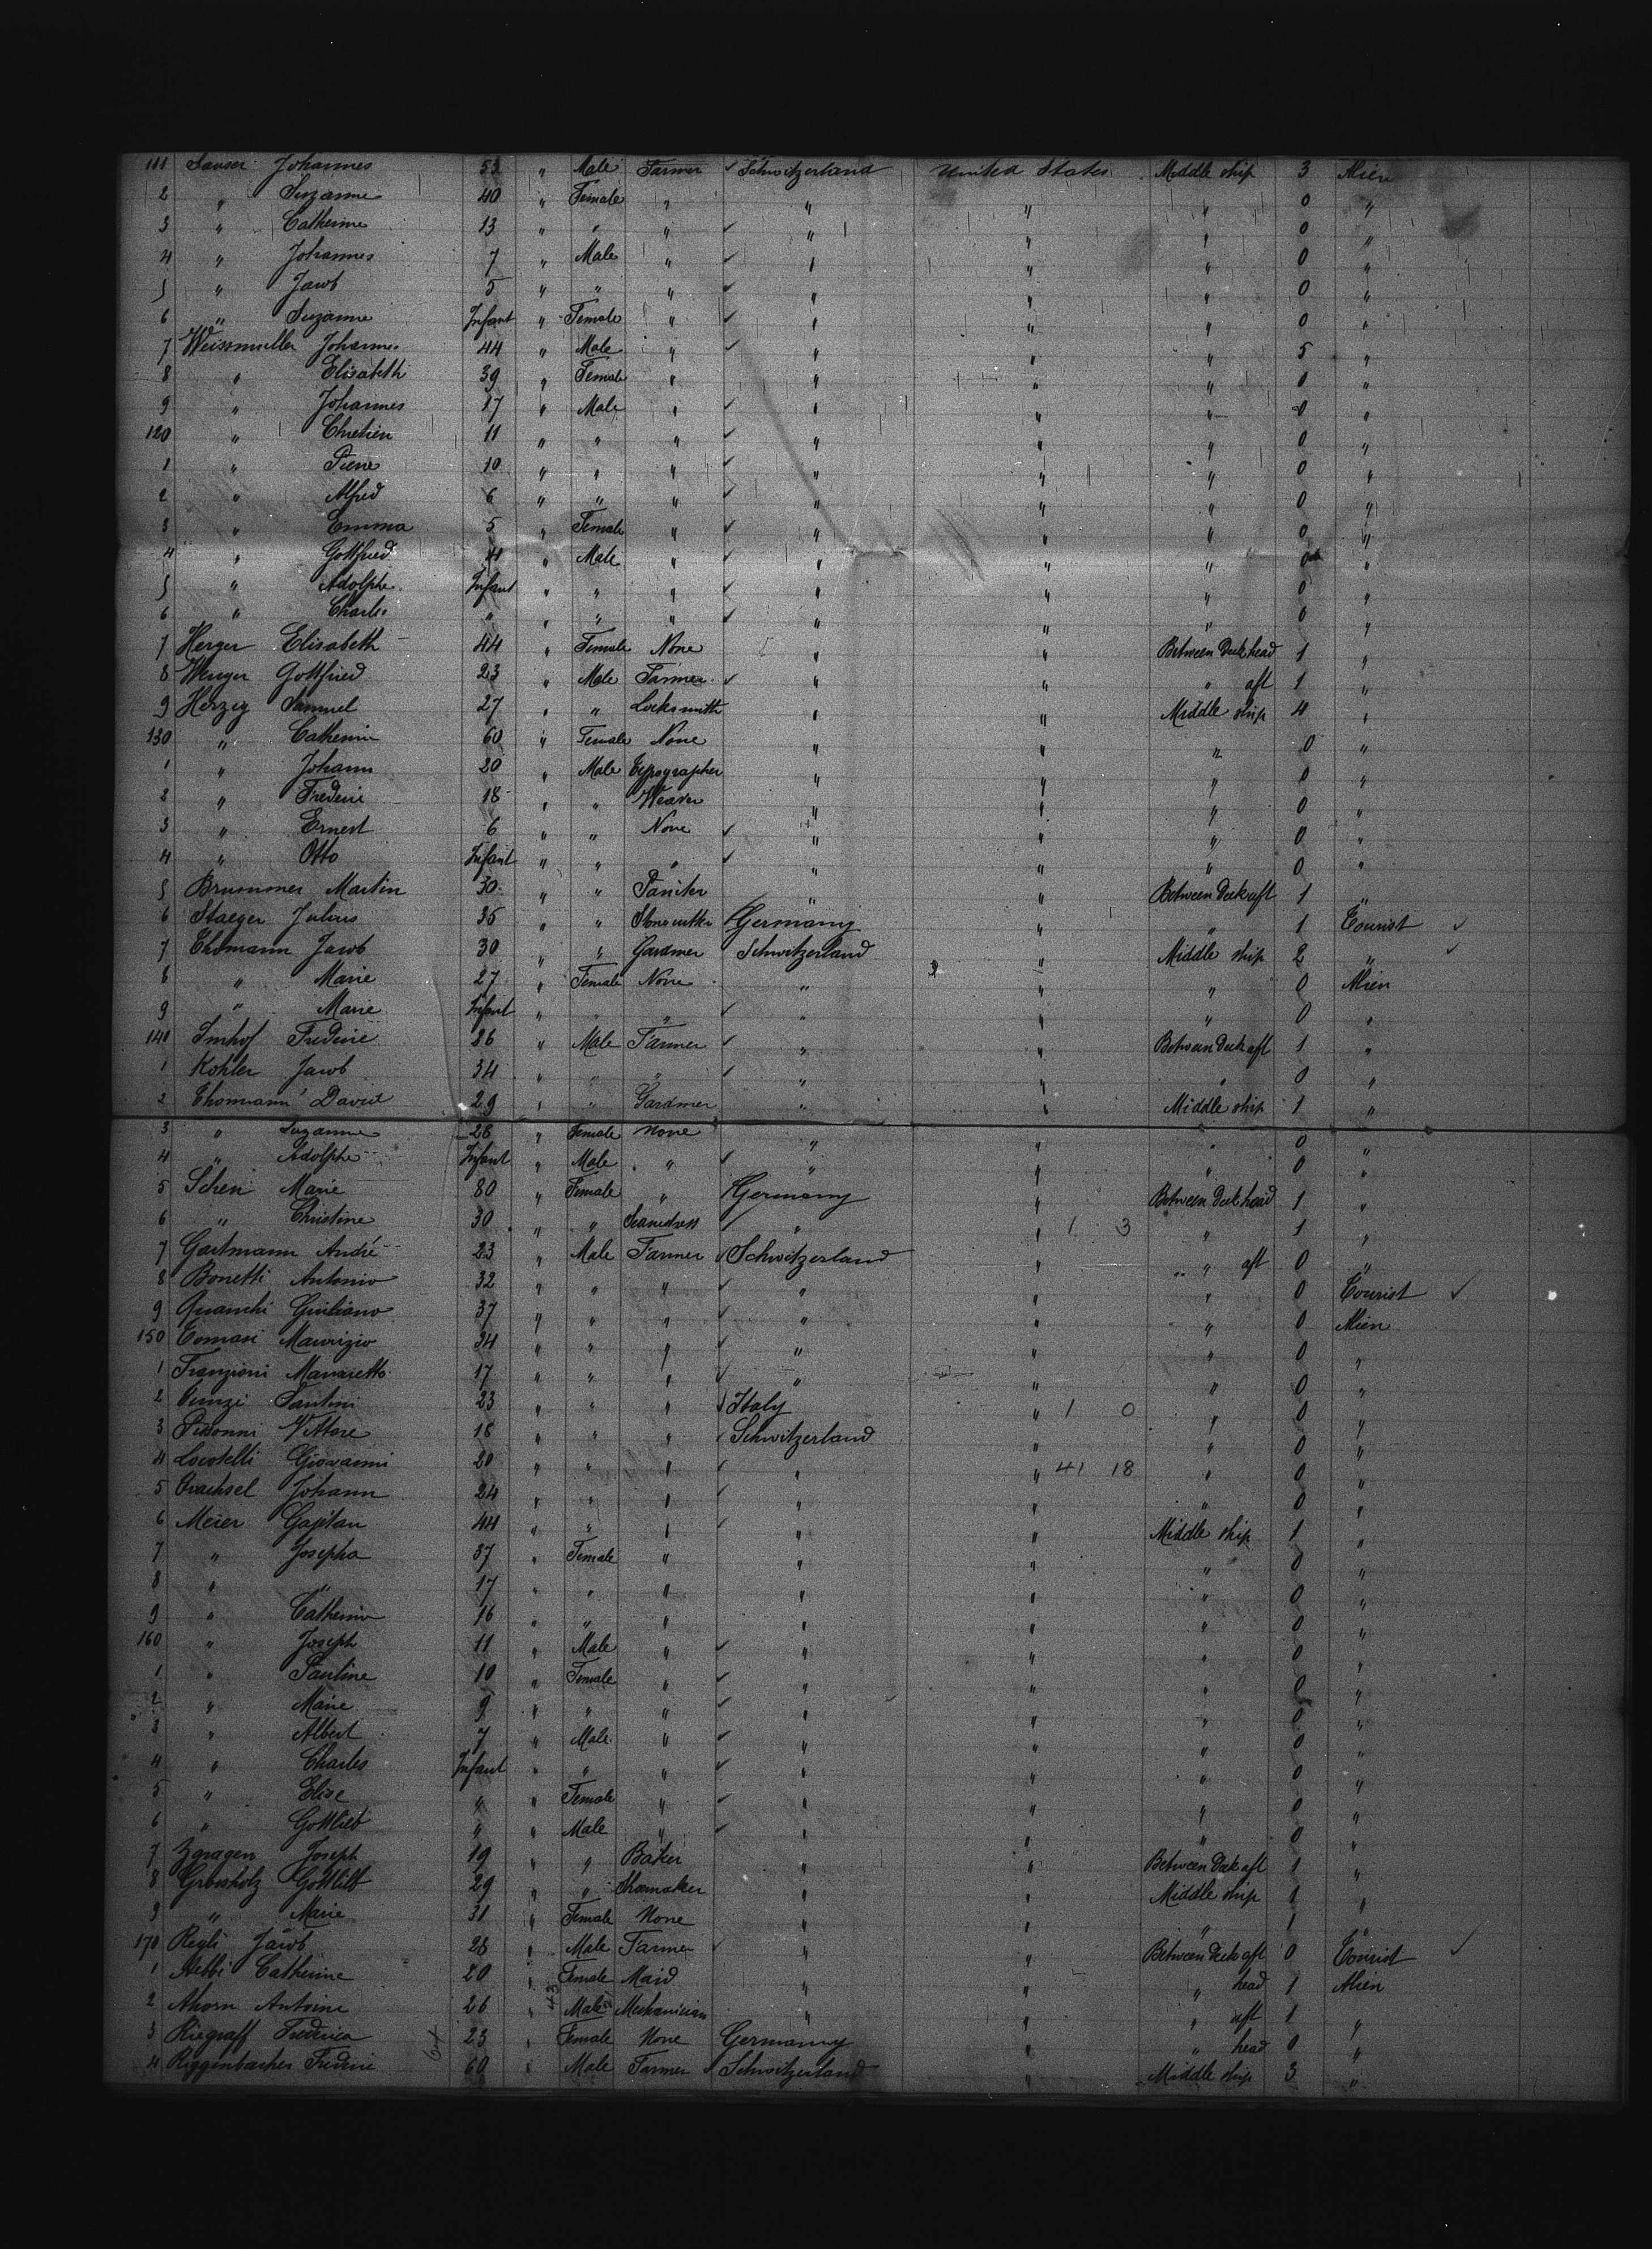 111 Sauser Johannes 53 " Male Farmer ✓ Schwitzerland United States Middle ship 3 Alien
2 " Suzanne 40 " Female " " " " 0 "
3 " Catherine 13 " " " ✓ " " " 0 "
4 " Johannes 7 " Male " ✓ " " " 0 "
5 " Jacob 5 " " " ✓ " " " 0 "
6 " Suzanne Infant " Female " ✓ " " " 0 "
7 Weissmuller Johannes 44 " Male " ✓ " " " 5 "
8 " Elisabeth 39 " Female " " " " 0 "
9 " Johannes 17 " Male " ✓ " " " 0 "
120 " Chretien 11 " " " ✓ " " " 0 "
1 " Pierre 10 " " " ✓ " " " 0 "
2 " Alfred 6 " " " ✓ " " " 0 "
3 " Emma 5 " Female " ✓ " " " 0 "
4 " Gottfried 4 " Male " ✓ " " " 0 "
5 " Adolphe Infant " " " ✓ " " " 0 "
6 " Charles " " " " ✓ " " " 0 "
7 Herger Elisabeth 44 " Female None " " Between Deck head 1 "
8 Wenger Gottfried 23 " Male Farmer ✓ " " " aft 1 "
9 Herzig Samuel 27 " " Locksmith " " Middle ship 4 "
130 " Catherine 60 " Female None " " " 0 "
1 " Johann 20 " Male Typographer " " " 0 "
2 " Frederic 18 " " Weaver " " " 0 "
3 " Ernest 6 " " None ✓ " " " 0 "
4 " Otto Infant " " " ✓ " " " 0 "
5 Brunner Martin 30 " " Painter " " Between Deck aft 1 "
6 Staeger Julius 35 " " Germany " " 1 Tourist ✓
7 Thomann Jacob 30 " " Gardmer Schwitzerland " Middle ship 2 " ✓
8 " Marie 27 " Female None " " " 0 Alien
9 " Marie Infant " " " ✓ " " " 0 "
140 Imhof Frederic 26 " Male Farmer ✓ " " Between Deck aft 1 "
1 Kohler Jacob 34 " " " ✓ " " " 0 "
2 Thomann David 29 " " Gardmer " " Middle ship 1 "
3 " Suzanne 28 " Female None " " " 0 "
4 " Adolphe Infant " Male " ✓ " " " 0 "
5 Marie 30 " Female " Germany " Between Deck head 1 "
6 " Christine 30 " " ✓ " " 1 3 " 1 "
7 Gartmann André 23 " Male Farmer ✓ Schwitzerland " " " aft 0 "
8 Bonetti Antonio 32 " " " ✓ " " " 0 Tourist ✓
9 Giuliano 37 " " " ✓ " " " 0 Alien
150 Tomasi Maurizio 34 " " " ✓ " " " 0 "
1 Franzioni 17 " " " ✓ " " " 0 "
2 Santini 23 " " " ✓ Italy " 1 0 " 0 "
3 Vittore 18 " " " ✓ Schwitzerland " " 0 "
4 Locotelli Giovanni 20 " " " ✓ " " 41 18 " 0 "
5 Johann 24 " " " ✓ " " " 0 "
6 Meier Gapitan 44 " " " ✓ " " Middle ship 1 "
7 " Josepha 37 " Female " " " " 0 "
8 " " 17 " " " " " " 0 "
9 " Catherine 16 " " " " " " 0 "
160 " Joseph 11 " Male " ✓ " " " 0 "
1 " Pauline 10 " Female " ✓ " " " 0 "
2 " Marie 9 " " " ✓ " " " 0 "
3 " Albert 7 " Male " ✓ " " " 0 "
4 " Charles Infant " " " ✓ " " " 0 "
5 " Elise " " Female " ✓ " " " 0 "
6 " Gottlieb " " Male " ✓ " " " 0 "
7 Zgragen Joseph 19 " " Baker " " Between Deck aft 1 "
8 Grossholz Gottlieb 29 " " Shoemaker " " Middle ship 1 "
9 " Marie 31 " Female None " " " 1 "
170 Regli Jacob 28 " Male Farmer ✓ " " Between Deck aft 0 Tourist ✓
1 Aebbi Catherine 20 " Female Maid " " " head 1 Alien
2 Ahorn Antoine 26 " 43 Male Mechanician " " " aft 1 "
3 Riegraff Frederica 23 " Female None Germany " " head 0 "
4 Riggenbacher Frederic 60 " Male Farmer ✓ Schwitzerland " Middle ship 3 "